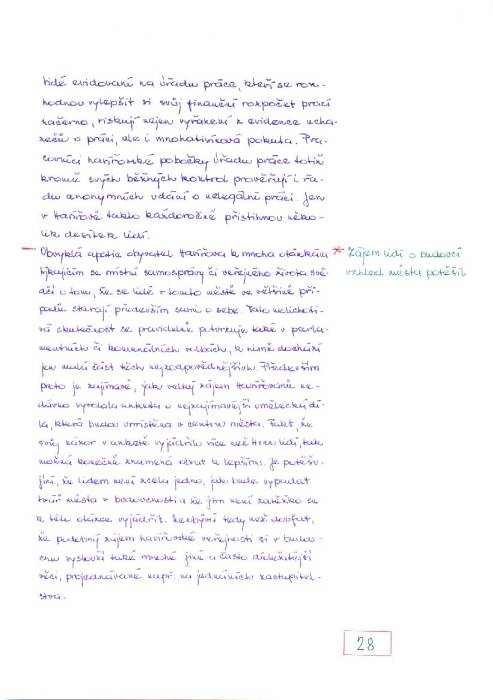 Lidé evidovaní na Úřadu práce, kteří se roz-
hodnou vylepšit si svůj finanční rozpočet prací
načerno, riskují nejen vyřazení z evidence ucha-
zečů o práci, ale i mnohatisícová pokuta. Pra-
covníci havířovské pobočky Úřadu práce totiž
kromě svých běžných kontrol prověřují i řa-
du anonymních udání o nelegální práci. Jen
v Havířově takto každoročně přistihnou něko-
lik desítek lidí.
Obvyklá apatie obyvatel Havířova k mnoha otázkám
týkajícím se místní samosprávy či veřejného života svě-
dčí o tom, že se lidé v tomto městě ve většině pří-
padů starají především sami o sebe. Tato nelichoti-
vá skutečnost se pravidelně potvrzuje také v parla-
mentních či komunálních volbách, k nimž dochází
jen malá část těch nejzodpovědnějších. Především
proto je zajímavé, jak velký zájem Havířovanů ne-
dávno vyvolala anketa o nejzajímavější umělecká dí-
la, která budou umístěna v centru města. Fakt, že
svůj názor v anketě vyjádřilo více než lidí, tak
možná konečně znamená obrat k lepšímu. Je potěšu-
jící, že lidem není zcela jedno, jak bude vypadat
tvář města v budoucnosti a že jim není zatěžko se
k této otázce vyjádřit. Nezbývá tedy než doufat,
že podobný zájem havířovské veřejnosti si v budou-
cnu vyslouží také mnohé jiné a často důležitější
věci, projednávané např. na jednáních zastupitel-
stva.
* Zájem lidí o budoucí
vzhled města potěšil
28